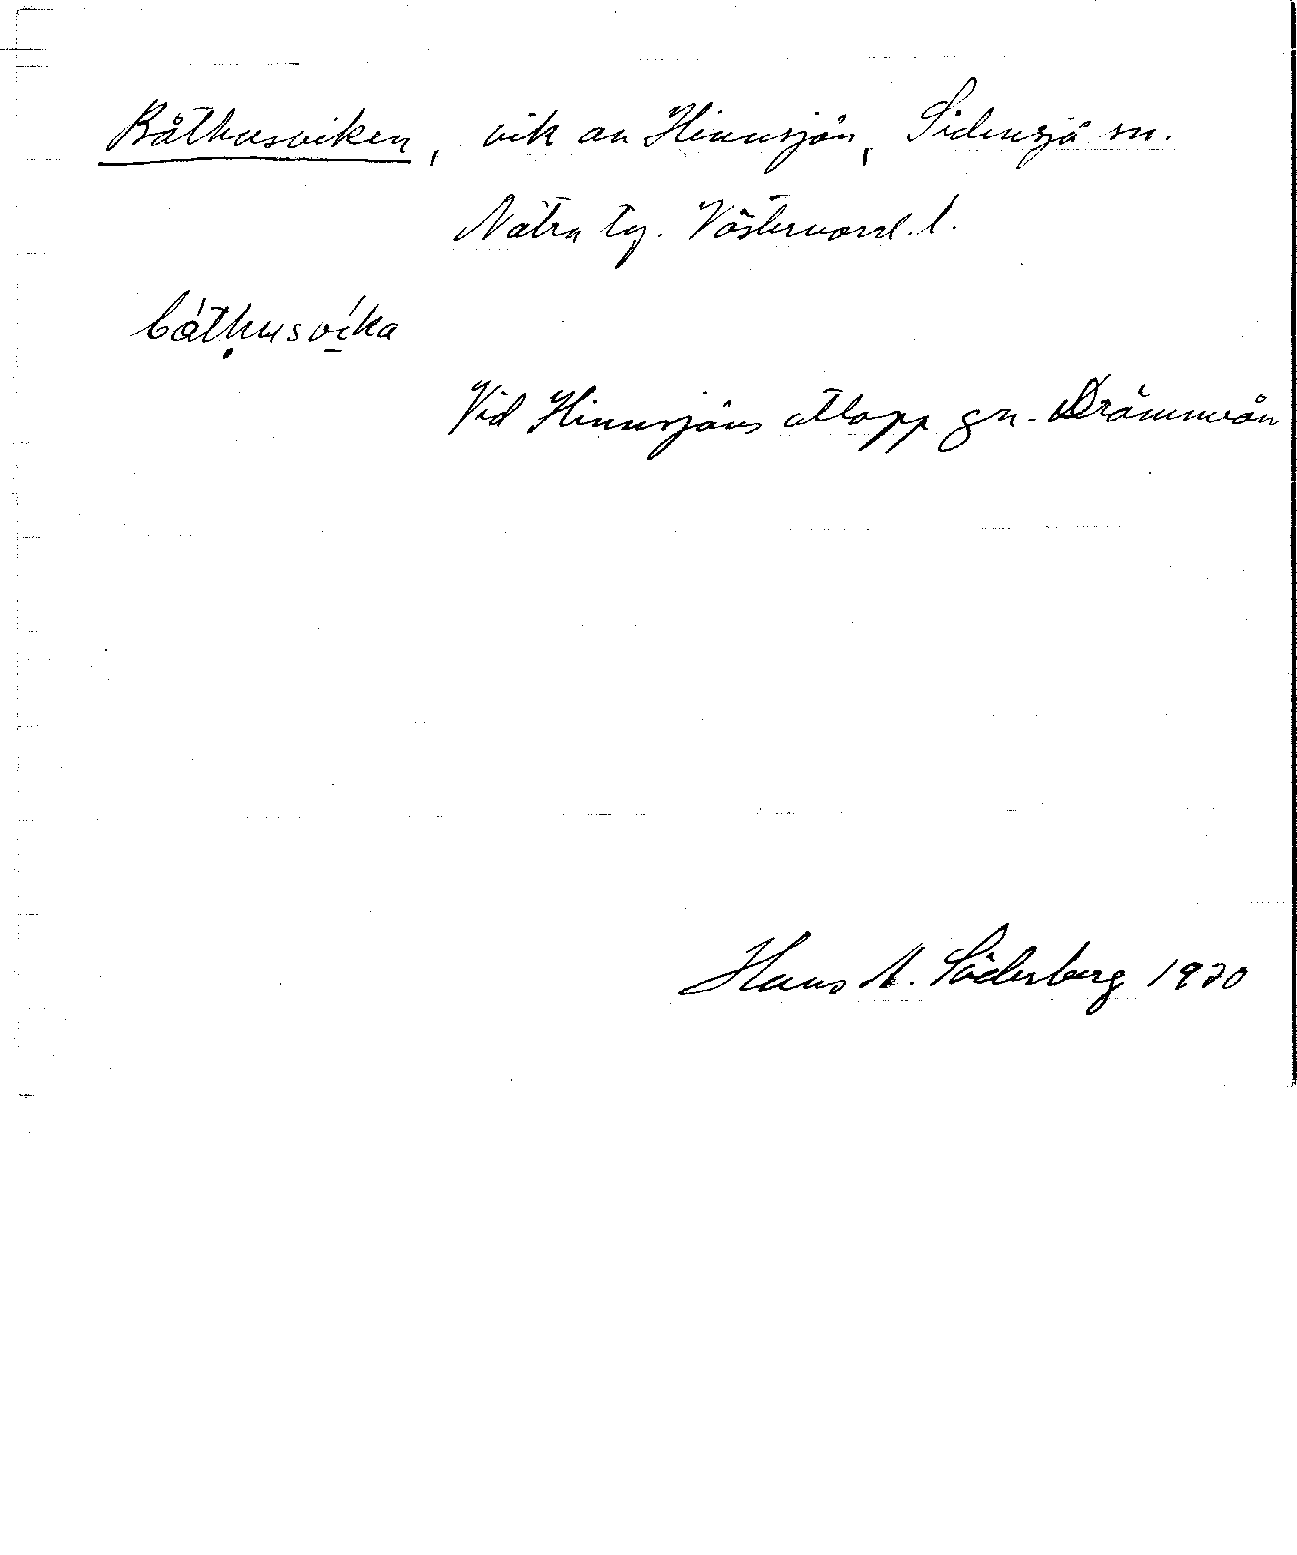 Båthusviken, vik av Hinnsjön, Sidensjö sn.
Nätra tg. Västernorrl. l.
båthusvika
Vid Hinnsjöns utlopp gn. Drömmeån
Hans A. Söderberg 1970